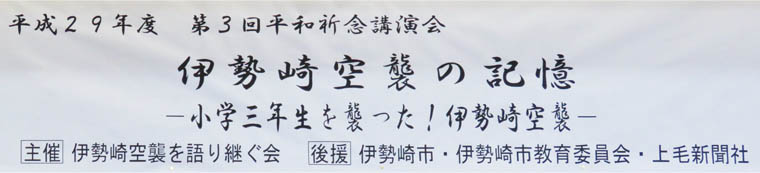 平成29年度　第3回平和祈念講演会
伊勢崎空襲の記憶
―小学三年生を襲った!伊勢崎空襲―
主催 伊勢崎空襲を語り継ぐ会　後援 伊勢崎市・伊勢崎市教育委員会・上毛新聞社